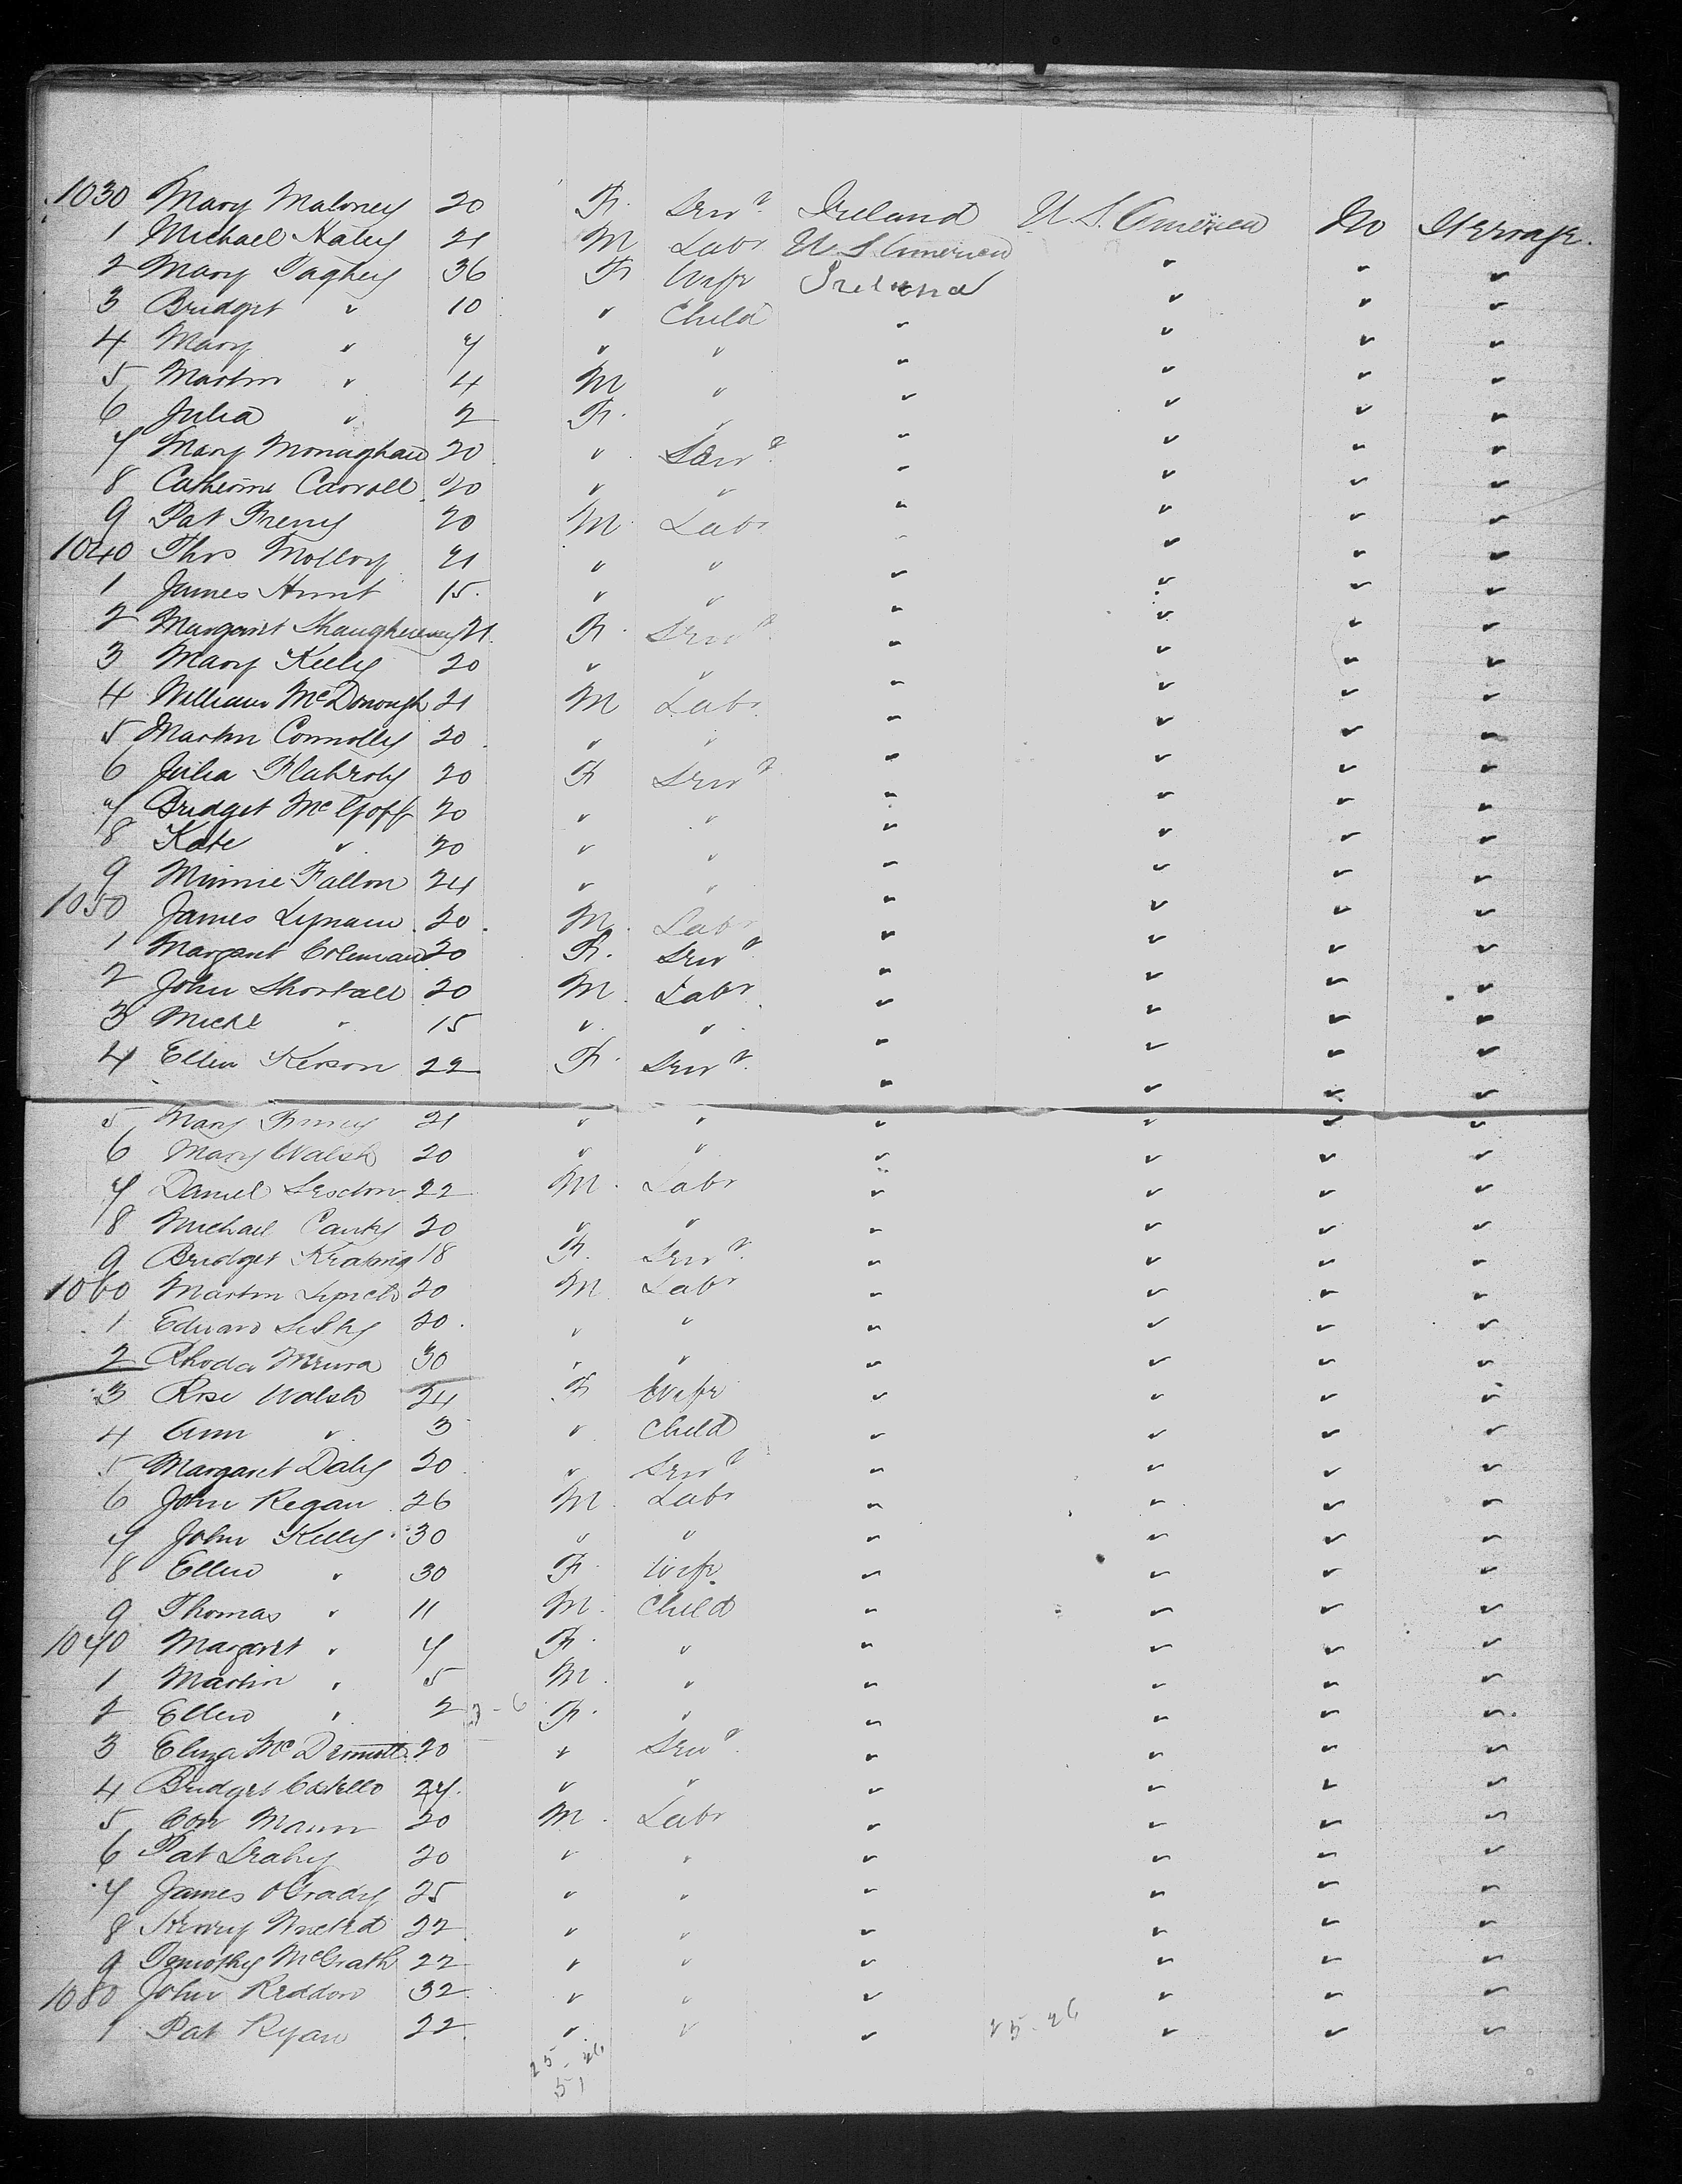 1030 Mary Maloney 20 F. Servt. Ireland U. S. America No Steerage.
1 Michael Haley 21 M Labr U S America " " "
2 Mary 36 F Wife Ireland " " "
3 Bridget " 10 " Child " " " "
4 Mary " 7 " " " " " "
5 Martin " 4 M " " " " "
6 Julia " 2 F. " " " " "
7 Mary Monaghan 20 " Servt. " " " "
8 Catherine Carroll 20 " " " " " "
9 Pat 20 M. Labr " " " "
1040 Thos Molloy 21 " " " " " "
1 James Hunt 15. " " " " " "
2 Margaret Shaughnessy 21. F. Servt. " " " "
3 Mary Keely 20 " " " " " "
4 William McDonough 21 M Labr " " " "
5 Martin Connolly 20 " " " " " "
6 Julia Flaherty 20 F Servt " " " "
7 Bridget McGoff 20 " " " " " "
8 Kate " 20 " " " " " "
9 Minnie Fallon 24 " " " " " "
1050 James Lynam 20. M. Labr " " " "
1 Margaret Coleman 20 F. Servt " " " "
2 John Shortall 20 M. Labr " " " "
3 Michl " 15 " " " " " "
4 Ellen 22 F. Servt. " " " "
5 Mary 21 " " " " " "
6 Mary Walsh 20 " " " " " "
7 Daniel 22 M. Labr " " " "
8 Michael 20 " " " " " "
9 Bridget Keating 18 F. Servt. " " " "
1060 Martin Lynch 20 M Labr " " " "
1 Edward 20. " " " " " "
2 Rhoda 30 " " " " " "
3 Rose Walsh 24 F Wife " " " "
4 Ann " 3 " Child " " " "
5 Margaret Daly 20 " Servt " " " "
6 John Regan 26 M. Labr " " " "
7 John Kelly 30 " " " " " "
8 Ellen " 30 F. Wife " " " "
9 Thomas " 11 M. Child " " " "
1070 Margaret " 7 F. " " " " "
1 Martin " 5 M. " " " " "
2 Ellen " 2 F. " " " " "
3 Eliza McDermott 20 " Servt. " " " "
4 Bridget Costello 24. " " " " " "
5 Con Mann 20 M. Labr " " " "
6 Pat Leahy 20 " " " " " "
7 James OGrady 25 " " " " " "
8 Henry 22 " " " " " "
9 Timothy McGrath 22 " " " " " "
1080 John Reddon 32. " " " " " "
1 Pat Ryan 22 " " " " " "
25-26 25-26
51